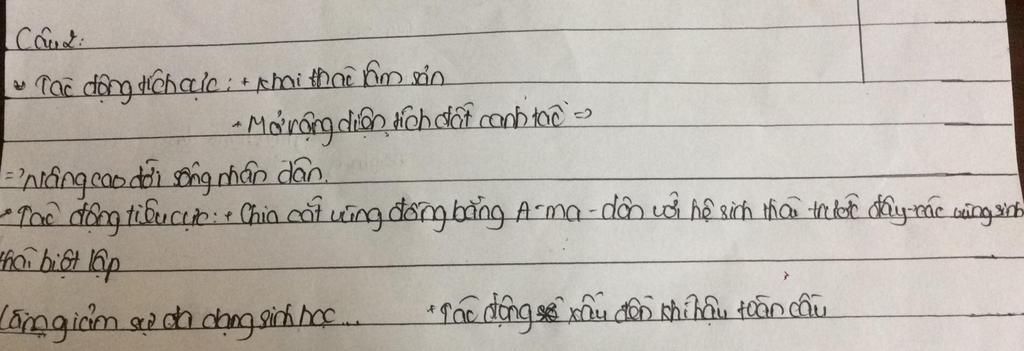 Câu 2:
Tác động tích cực: + Khai thác lâm sản
+ Mở rộng diện tích đất canh tác =>
=> nâng cao đời sống nhân dân.
- Tác động tiêu cực: + Chia cắt vùng đồng bằng A-ma-dôn với hệ sinh thái trước đây các vùng sinh
thái biệt lập
Làm giảm sự đa dạng sinh học... + Tác động xấu đến khí hậu toàn cầu